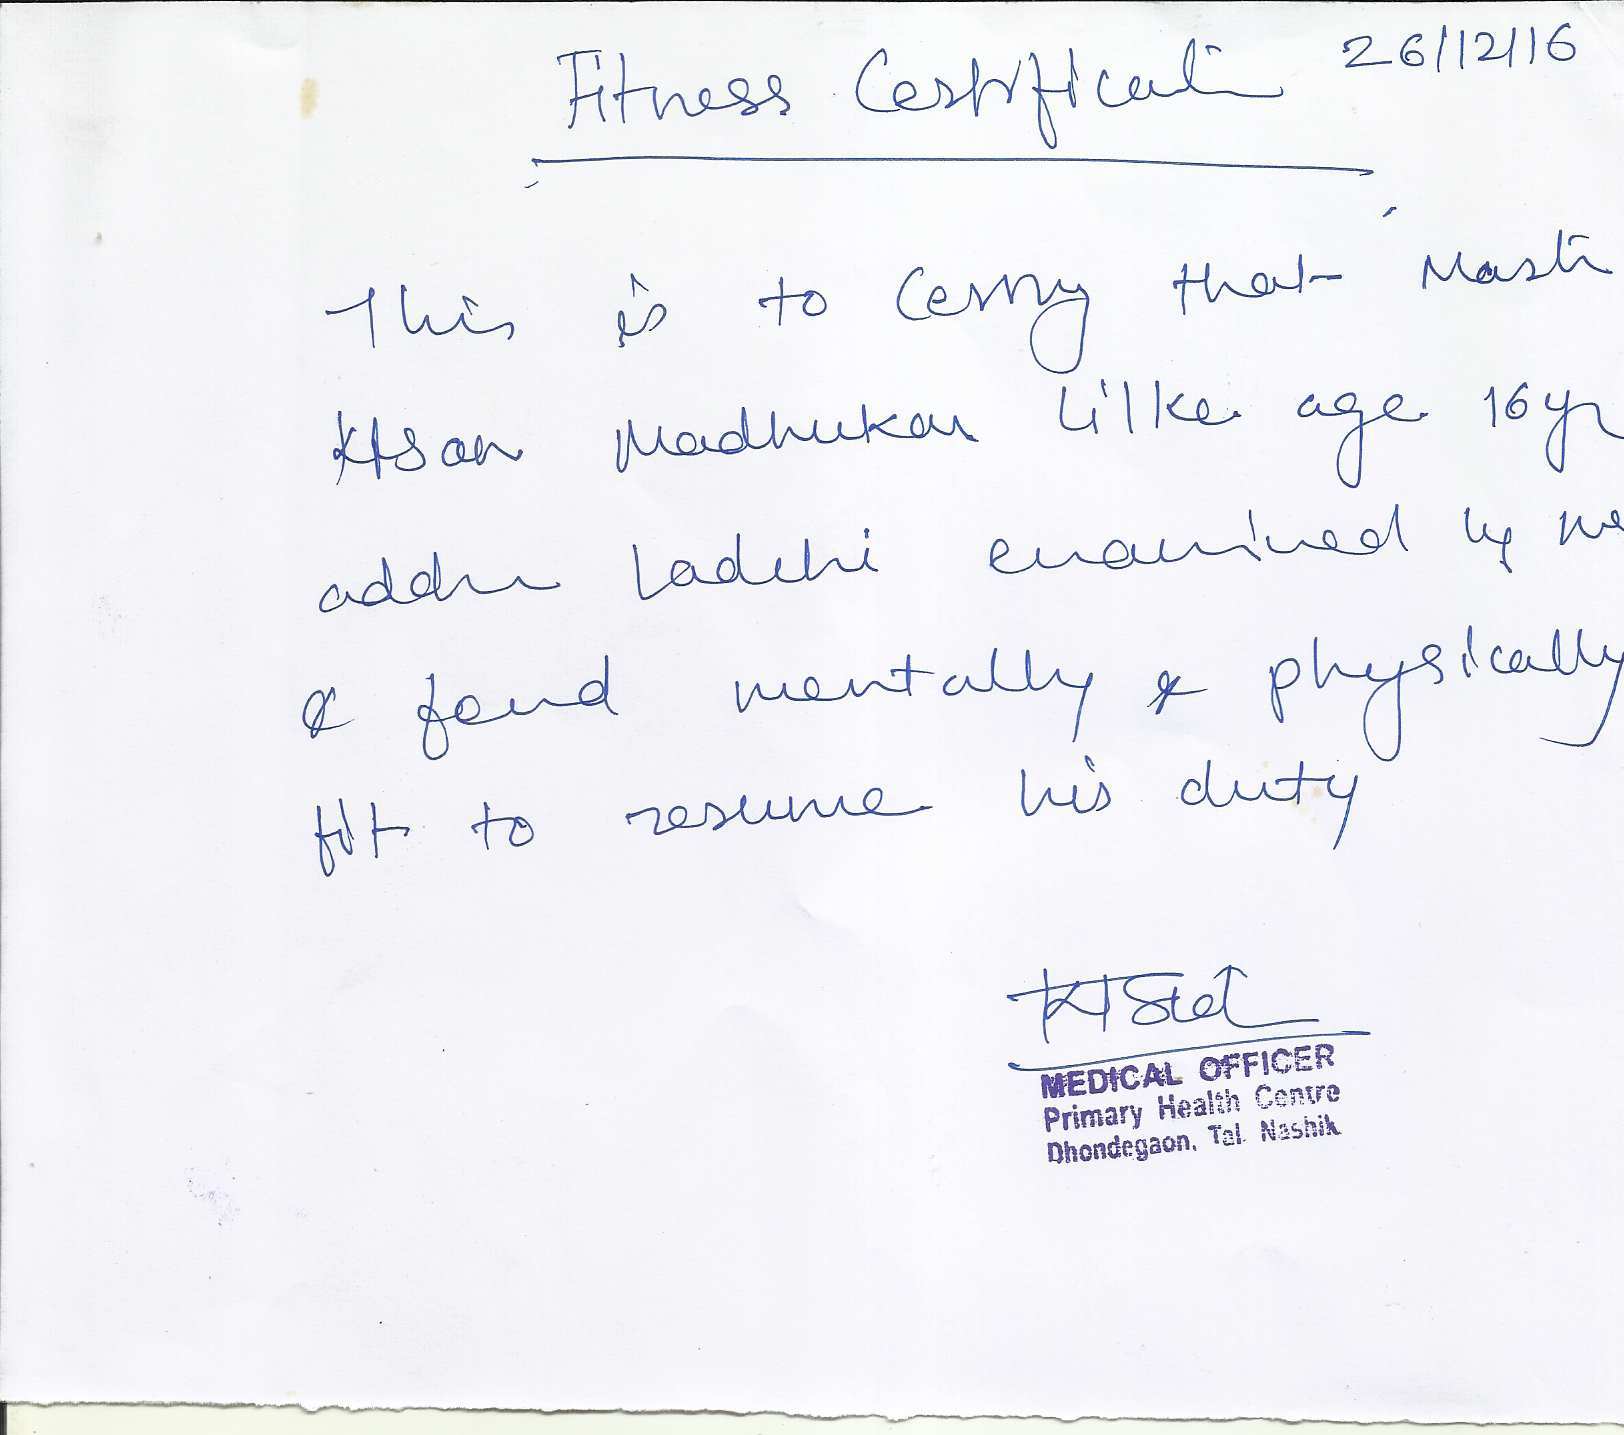 26/12/16
Fitness Certificate
This is to Certify that Mast
Kisan Madhukar Lilke age 16yr
addr Ladchi examined by me
& found mentally & physically
fit to resume his duty
MEDICAL OFFICER
Primary Health Centre
Dhondegaon, Tal. Nashik